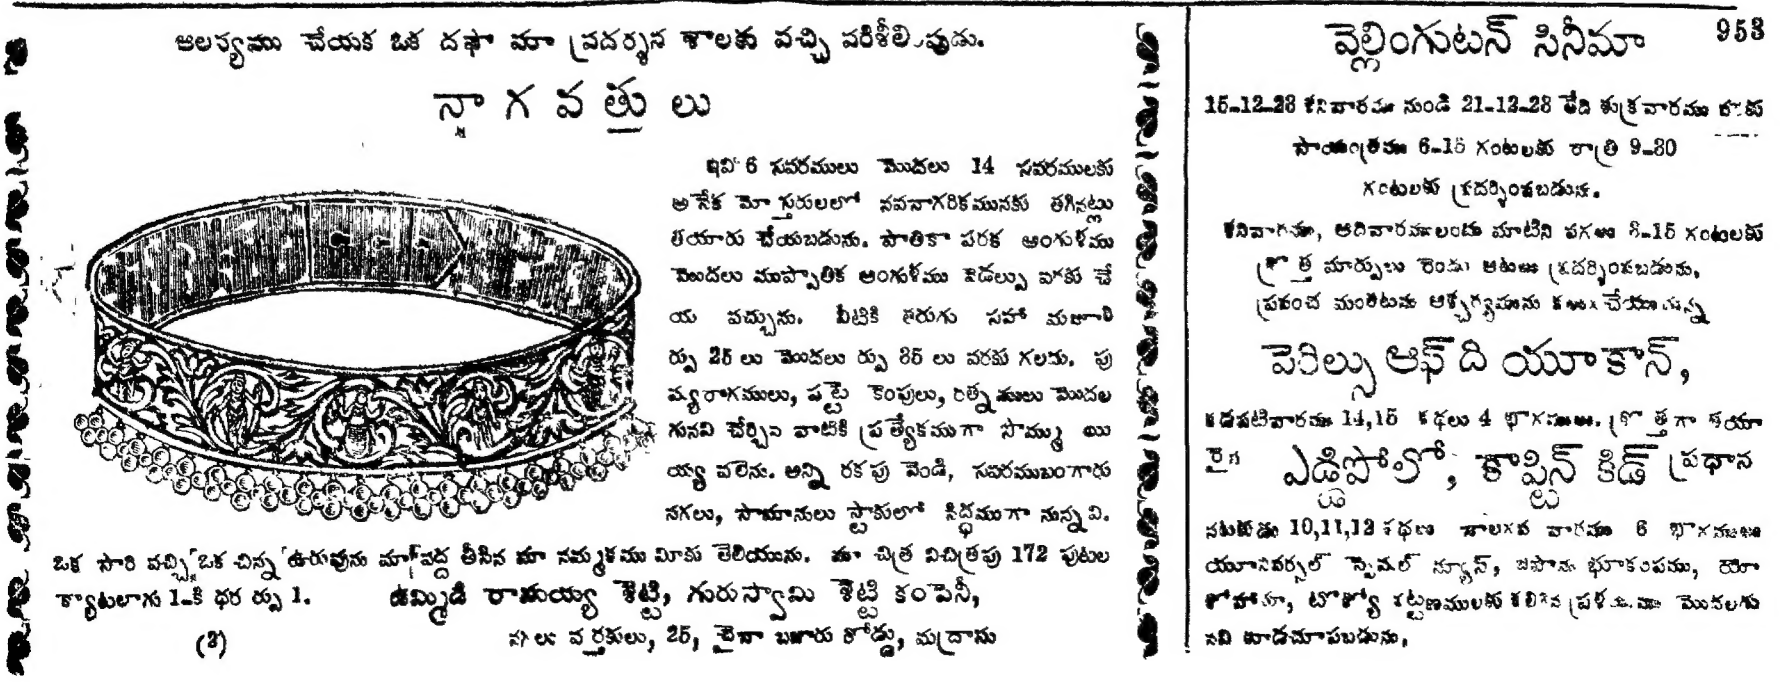 ఆలస్యము చేయక ఒక దఫా మా ప్రదర్శన శాలకు వచ్చి పరిశీలింపుడు.
నాగవత్తులు
ఇవి 6 సవరములు మొదలు 14 సవరములకు
అనేక మోస్తరులలో నవనాగరికమునకు తగినట్లు
తయారు చేయబడును. పాతికా పరక అంగుళము
మొదలు ముప్పాతిక అంగుళము వెడల్పు వరకు చే
య వచ్చును. వీటికి తరుగు సహా మజూరి
ర్పు 25 లు మొదలు ర్పు 35 లు వరకు గలదు. పు
ష్యరాగములు, పట్టె కెంపులు, రత్నములు మొదల
గునవి చేర్చిన వాటికి ప్రత్యేకముగా సొమ్ము యి
య్య వలెను. అన్ని రకపు వెండి, సవరముబంగారు
నగలు, సామానులు స్టాకులో సిద్ధముగా నున్నవి.
ఒక సారి వచ్చి ఒక చిన్న ఉరువును మావద్ద తీసిన మా నమ్మకము మీకు తెలియును. మా చిత్ర విచిత్రపు 172 పుటల
క్యాటలాగు 1-కి ధర ర్పు 1.
ఉమ్మిడి రామయ్య శెట్టి, గురుస్వామి శెట్టి కంపెనీ,
నగలు వర్తకులు, 25, చైనా బజారు రోడ్డు, మద్రాసు
(3)
వెల్లింగుటన్ సినీమా
953
15-12-28 శనివారము నుండి 21-12-28 తేది శుక్రవారము వరకు
సాయంత్రము 6-15 గంటలకు రాత్రి 9-30
గంటలకు ప్రదర్శింపబడును.
శనివారము, ఆదివారములందు మాటినీ పగలు 3-15 గంటలకు
క్రొత్త మార్పులు రెండు ఆటలు ప్రదర్శింపబడును.
ప్రపంచ మంతటను ఆశ్చర్యమును కలుగచేయుచున్న
పెరిల్సు ఆఫ్ ది యూకాన్,
కడపటివారము 14,15 కథలు 4 భాగములు. క్రొత్తగా తయా
రైన ఎడ్డిపోలో, కాప్టిన్ కిడ్ ప్రధాన
నటకుడు 10,11,12 కథలు నాలగవ వారము 6 భాగములు
యూనివర్సల్ స్పెషల్ న్యూస్, జపాను భూకంపము, యో
కోహామా, టోక్యో పట్టణములకు కలిగిన ప్రళయము మొదలగు
నవి కూడచూపబడును.